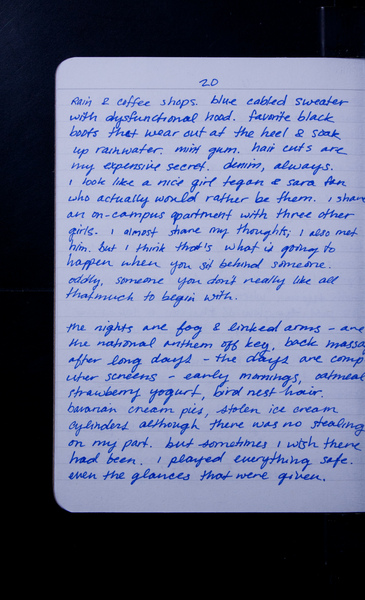 20
Rain & coffee shops. blue cabled sweater
with dysfunctional hood. favorite black
boots that wear out at the heel & soak
up rainwater. mint gum. hair cuts are
my expensive secret. denim, always.
I look like a nice girl tegan & sara fan
who actually would rather be them. I share
an on-campus apartment with three other
girls. I almost share my thoughts; I also met
him. but I think that's what is going to
happen when you sit behind someone.
oddly, someone you don't really like all
that much to begin with.
the nights are fog & linked arms - are
the national anthem off key, back massa
after long days - the days are comp
uter screens - early mornings, oatmeal
strawberry yogurt, bird nest hair.
bavarian cream pies, stolen ice cream
cylinders although there was no stealing
on my part. but sometimes I wish there
had been. I played everything safe.
even the glances that were given.